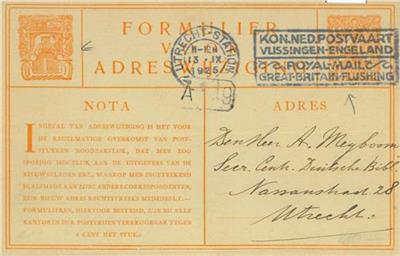 FORMULIER
ADRES
UTRECHT-STATION
13 IX
1925
KON.NED.POSTVAART
VLISSINGEN-ENGELAND
ROYAL-MAIL
GREAT-BRITAIN-FLUSHING
NOTA
INGEVAL VAN ADRESWIJZIGING IS HET VOOR
DE REGELMATIGE OVERKOMST VAN POST-
STUKKEN NOODZAKELIJK, DAT MEN ZOO
SPOEDIG MOGELIJK, AAN DE UITGEVERS VAN
DE NIEUWSBLADEN ENZ., WAAROP MEN INGETEEKEND
IS, ALSMEDE AAN ZIJNE ANDERE CORRESPONDENTEN,
ZIJN NIEUW ADRES RECHTSTREEKS MEDEDEELT.—
FORMULIEREN, HIERVOOR BESTEMD, ZIJN BIJ ALLE
KANTOREN DER POSTERIJEN VERKRIJGBAAR TEGEN
2 CENT HET STUK.
ADRES
Den Heer A. Meyboom
Secr. Centr. Duitsche Bibl.
Nassaustraat 28
Utrecht.